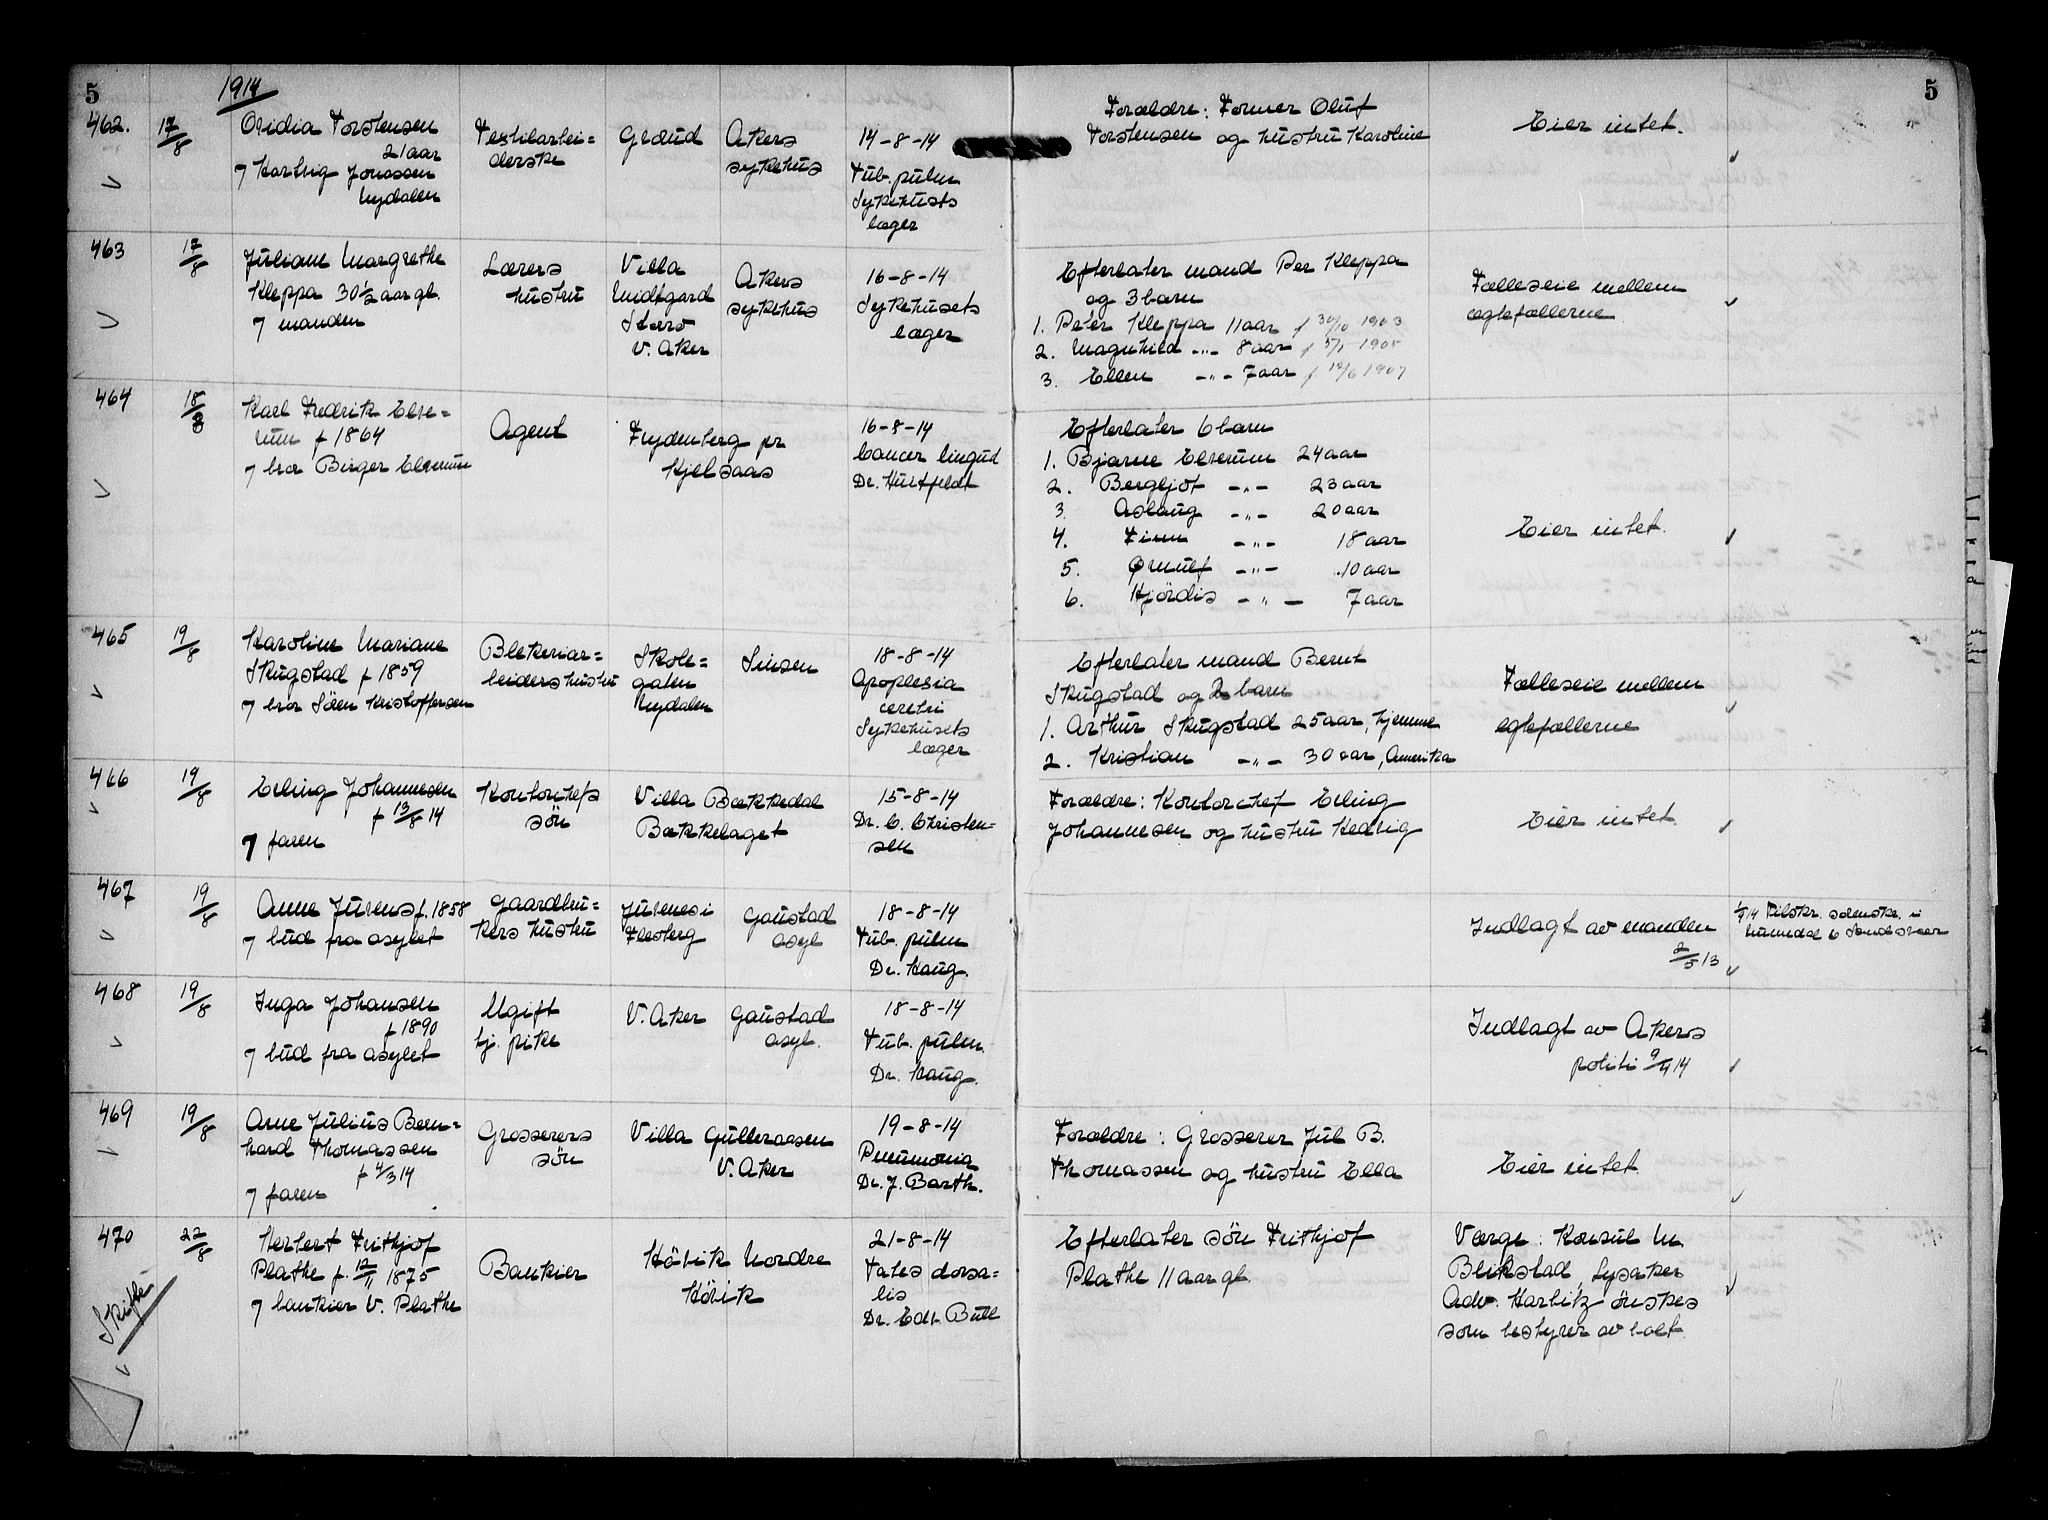 5
1914
5
462.
17/8
Ovidia Torstensen
21 aar
7 Hartvig Jonassen
Nydalen
Textilarbei=
derske
Grorud
Akers
sykehus
14-8-14
Tub. pulm
Sykehusets
læger
Forældre: Former Oluf
Torstensen og hustru Karoline
Eier intet.
463
17/8
Juliane Margrethe
Kleppa 30½ aar gl.
7 manden
Lærers
hustru
Villa
Midtgard
V. Aker
Akers
sykehus
16-8-14
Sykehusets
læger
Efterlater mand Per Kleppa
og 3 barn
1. Peter Kleppa 11 aar f 30/10 1903
2. Magnhild -"- 8 aar
3. Ellen -"- 7 aar f 12/6 1907
Fælleseie mellem
ægtefællerne
464
18/8
Karl Fredrik Elve=
rum f 1864
7 bror Birger Elverum
Agent
Frydenberg pr
Kjelsaas
16-8-14
Cancer lingua
Dr. Huitfeldt
Efterlater 6 barn
1. Bjarne Elverum 24 aar
2. Bergljot -"- 23 aar
3. Aslaug -"- 20 aar
4. Finn -"- 18 aar
5. Ørnulf -"- 10 aar
6. Hjördis -"- 7 aar
Eier intet.
465
19/8
Karoline Mariane
Skugstad f 1859
7 bror Sören Kristoffersen
Blekeriar=
beiders hustru
Skole=
gaten
Nydalen
Sinsen
18-8-14
Apoplesia
cerebri
Sykehusets
læger
Efterlater mand Bernt
Skugstad og 2 barn
1. Arthur Skugstad 25 aar, hjemme
2. Kristian -"- 30 aar, Amerika
Fælleseie mellem
egtefællerne
466
19/8
Erling Johannesen
f 13/8 14
7 faren
Kontorchefs
sön
Villa Bækkedal
Bækkelaget
15-8-14
Dr. C. Christen=
sen
Forældre: Kontorchef Erling
Johannesen og hustru Hedvig
Eier intet.
467
19/8
Anne Juvens f. 1858
7 bud fra asylet
Gaardbru=
kers hustru
Juvenes i
Flesberg
Gaustad
asyl
18-8-14
Tub. pulm
Dr. Haug.
Indlagt av manden
2/5 13
468
19/8
Inga Johansen
f 1890
7 bud fra asylet
Ugift
tj. pike
V. Aker
Gaustad
asyl.
18-8-14
Tub. pulm.
Dr. Haug.
Indlagt av Akers
politi 9/4 14
469
19/8
Arne Julius Bern=
hard Thomassen
f 4/3 14
7 faren
Grosserers
sön
Villa Gulleraasen
V. Aker
19-8-14
Pneumonia
Dr. J. Barth.
Forældre: Grosserer Jul B.
Thomassen og hustru Ella
Eier intet
470
22/8
Skifte
Herbert Frithjof
Plathe f. 12/11 1875
7 bankier V. Plathe
Bankier
Hövik Nordre
Hövik
21-8-14
Tabes dorsa=
lis
Dr. Edv. Bull
Efterlater sön Frithjof
Plathe 11 aar gl.
Værge: Konsul M.
Blikstad, Lysaker
Adv. Harbitz önskes
som bestyrer av boet.